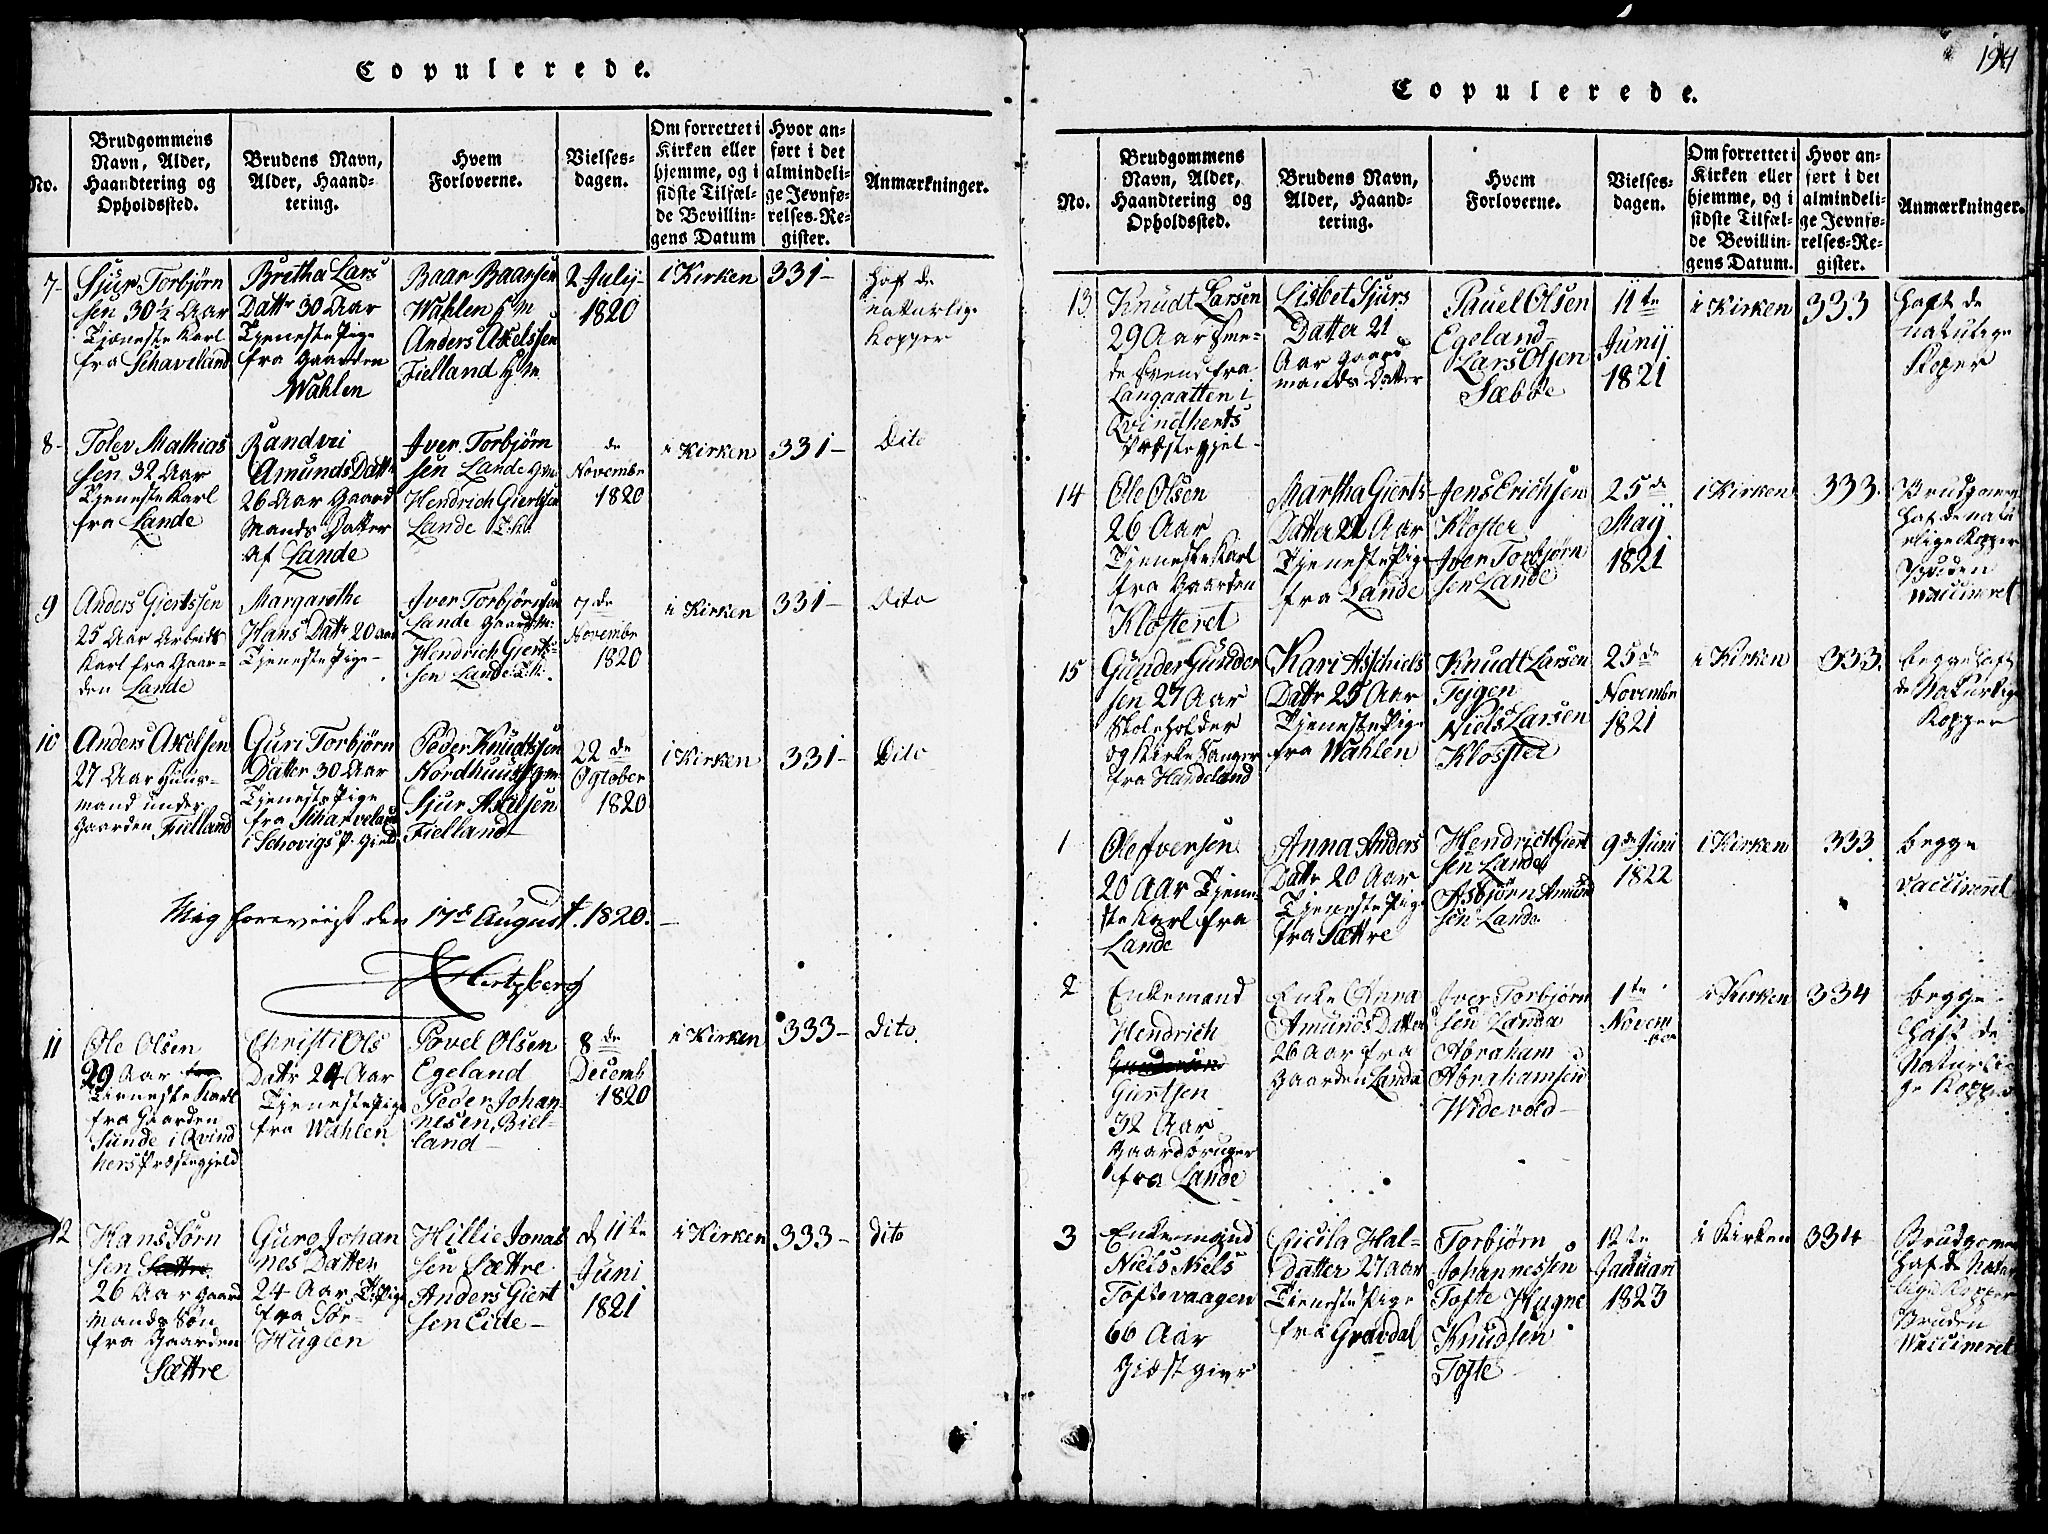 Copulerede.
No.
Brudgommens Navn, Alder, Haandtering og Opholdssted.
Brudens Navn, Alder, Haandtering.
Hvem Forloverne.
Vielsesdagen.
Om forrettet i Kirken eller hjemme, og i sidste Tilfælde Bevillingens Datum
Hvor anført i det almindelige Jevnførelses-Register.
Anmærkninger.
7-
Sjur Torbjørn
sen 30 1/2 Aar
Tjeneste Karl
fra Schaveland
Bretha Lars
Dattr 30 Aar
Tjeneste Pige
fra Gaarden
Wahlen
Baar Baarsen
Wahlen
Anders Axelssen
Fielland
2 Julij
1820
i Kirken
331-
Haft de
naturlige
Kopper
8-
Tolev Mathias
sen 32 Aar
Tjeneste Karl
fra Lande
Randvei
Amunds Dattr
26 Aar Gaard
Mands Datter
af Lande
Iver Torbjørn
sen Lande
Hendrich Giertsen
Lande
de
Novembr
1820
i Kirken
331-
Dito
9
Anders Gjertssen
25 Aar Arbeids
Karl fra Gaar-
den Lande
Margarethe
Hans Dattr 20 Aar
Tjeneste Pige-
Iver Torbjørnsen
Lande
Hendrich Giert-
sen Lande
7de
Novembr
1820
i Kirken
331-
Dito
10
Anders Axelsen
27 Aar Huus-
mand under
Gaarden Fielland
Guri Torbjørn
Datter 30 Aar
Tjeneste Pige
fra Scharveland
i Schovigs P. Gield
Peder Knudtssen
Nordhuus
Sjur Axelsen
Fielland
22de
Ogtober
1820
i Kirken
331-
Dito
Mig foreviist den 17de August 1820.
Hertzberg
11
Ole Olsen
29 Aar
Tieneste Karl
fra Gaarden
Sunde i Qvind
hers Præstegjeld
Christi Ols
Dattr 24 Aar
Tjeneste Pige
fra Wahlen
Povel Olsen
Egeland
Peder Johan-
nesen, Biel-
land-
8de
Decemb
1820
i Kirken
333-
Dito.
12
Hans Sørn
sen Sættre
26 Aar Gaard
mands Søn
fra Gaarden
Sættre
Guro Johan
nes Datter
24 Aar
fra Sør-
Huglen
Hillie Jonas
sen Sættre
Anders Giert
sen Eide-
d 11te
Juni
1821
i Kirken
333-
dito
194
Copulerede.
No.
Brudgommens Navn, Alder, Haandtering og Opholdssted.
Brudens Navn, Alder, Haandtering.
Hvem Forloverne.
Vielsesdagen.
Om forrettet i Kirken eller hjemme, og i sidste Tilfælde Bevillingens Datum.
Hvor anført i det almindelige Jevnførelses-Register.
Anmærkninger.
13
Knudt Larsen
29 Aar Sme-
de Svend fra
Langaatten i
Qvindherts
Præstegjel-
Lisbet Sjurs
Datter 21
Aar Gaard
mands Datter
Pauel Olsen
Egeland
Lars Olsen
Sæbøe
11te
Junij
1821
i Kirken
333
haft de
natulige
Koper
14
Ole Olsen
26 Aar
Tjeneste Karl
fra Gaarden
Klosteret
Martha Gierts
Datter 22 Aar
Tjeneste Pige
fra Lande
Jens Erichsen
Kloster
Iver Torbjørn
sen Lande
25de
Maij
1821
i Kirken
333.
Brudgomen
haf de natu
rlige Kopper
Bruden
vaccineret
15
Gunder Gunder
sen 27 Aar
Skoleholder
og Kirke Sanger
fra Handeland
Kari Aschiels
Dattr 25 Aar
Tjeneste Pige
fra Wahlen
Knudt Larsen
Tygen
Niels Larsen
Kloster
25de
Novembr
1821
i Kirken
333.
begge haft
de Naturlige
Kopper
1
Ole Iversen
20 Aar Tjene-
ste Karl fra
Lande
Anna Anders
Dattr 20 Aar
Tjeneste Pige
fra Sættre
Hendrich Giert
sen Lande
Asbjørn Amund
sen Lande
9de Juni
1822
i Kirken
333
begge
vaccineret
2
Enkemand
Hendrich
Gundersen
Giertsen
32 Aar
Gaardbruger
fra Lande
Enke Anna
Amunds Datter
26 Aar fra
Gaarden Landa
Iver Torbjørn
sen Landa
Abraham
Abrahamsen
Widevold-
1te
Novem
ber
i Kirken
334
begge
haft de
Naturli-
ge Kopper
3
Enkemand
Niels Niels
Toftevaagen
66 Aar
Giæstgiver
Cicila Hal-
datter 27 Aar
Tjeneste Pige
fra Gravdal
Torbjørn
Johannessen
Tofte Hugne
Knudsen
Tofte
12te
Januari
1823
i Kirken
334
Brudgomen
haf de Natur
lige Kopper
Bruden
Vaccineret